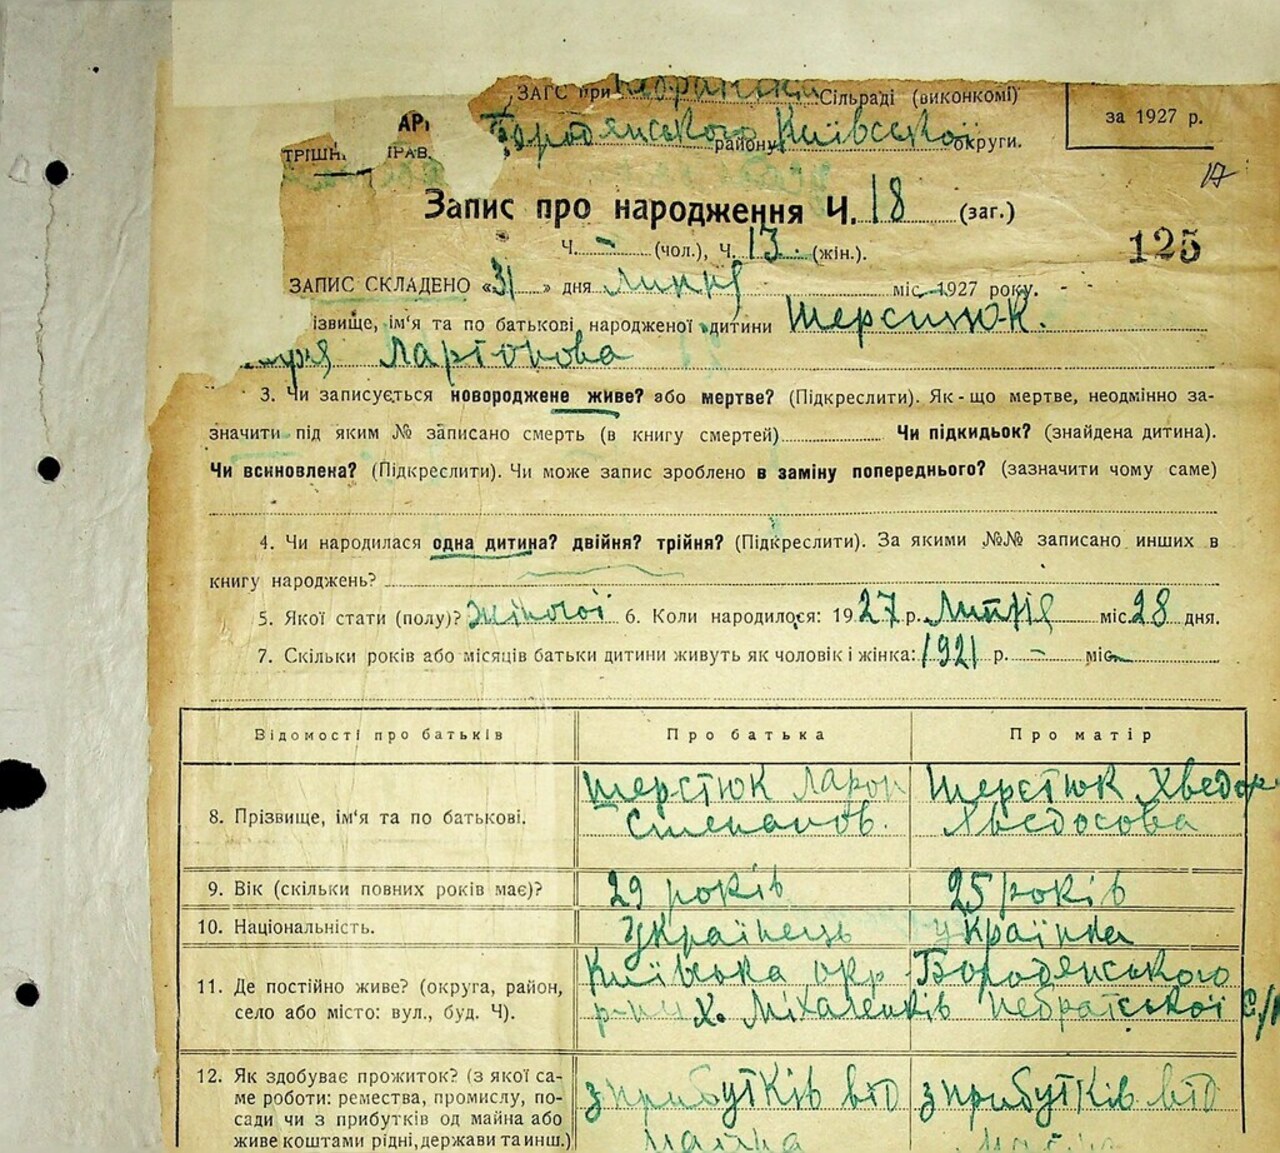 ЗАГС при Сільраді (виконкомі)
за 1927 р.
Бородянського району Київської округи.
17
Запис про народження Ч. 18 (заг.)
Ч. - (чол.), Ч. 13. (жін.).
125
ЗАПИС СКЛАДЕНО «31» дня липня міс. 1927 року.
ізвище, ім'я та по батькові народженої дитини Шерстюк.
Ларіонова
3. Чи записується новороджене живе? або мертве? (Підкреслити). Як-що мертве, неодмінно за-
значити під яким № записано смерть (в книгу смертей) Чи підкидьок? (знайдена дитина).
Чи всиновлена? (Підкреслити). Чи може запис зроблено в заміну попереднього? (зазначити чому саме)
4. Чи народилася одна дитина? двійня? трійня? (Підкреслити). За якими №№ записано инших в
книгу народжень?
5. Якої стати (полу)? жіночої 6. Коли народилося: 1927 р. Липня міс. 28 дня.
7. Скільки років або місяців батьки дитини живуть як чоловік і жінка: 1921 р. - міс.
Відомості про батьків Про батька Про матір
8. Прізвище, ім'я та по батькові. Шерстюк Ларон Степанов. Шерстюк Хведор
9. Вік (скільки повних років має)? 29 років 25 років
10. Національність. Українець українка
11. Де постійно живе? (округа, район, Київська окр Бородянського
село або місто: вул., буд. Ч). р-ну х. Міхаленків Небратської с/р
12. Як здобуває прожиток? (з якої са- з прибутків від з прибутків від
ме роботи: ремества, промислу, по- майна майна
сади чи з прибутків од майна або
живе коштами рідні, держави та инш.)